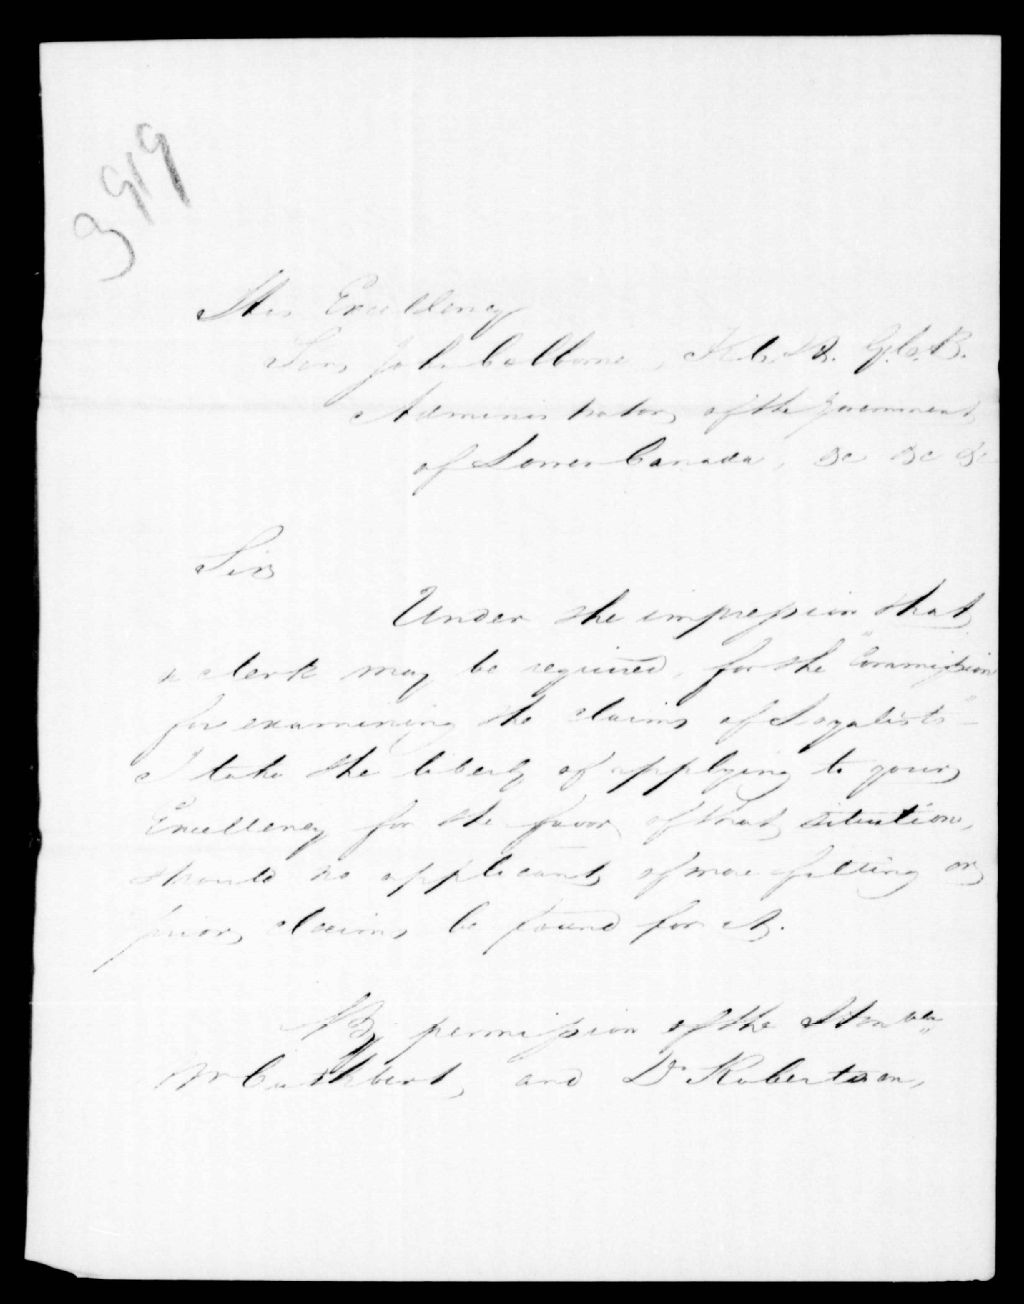 3919
His Excellency
Sir John Colborne, K.C.B. G.C.B.
Administrator of the Government
of Lower Canada, &c &c &c
Sir
Under the impression that
a clerk may be required, for the "Commission
for examining the claims of Loyalists" –
I take the liberty of applying to your
Excellency for the favor of that situation,
should no applicant of more fitting or
prior claims be found for it.
By permission of the Honble
Mr Cuthbert, and Dr Robertson,